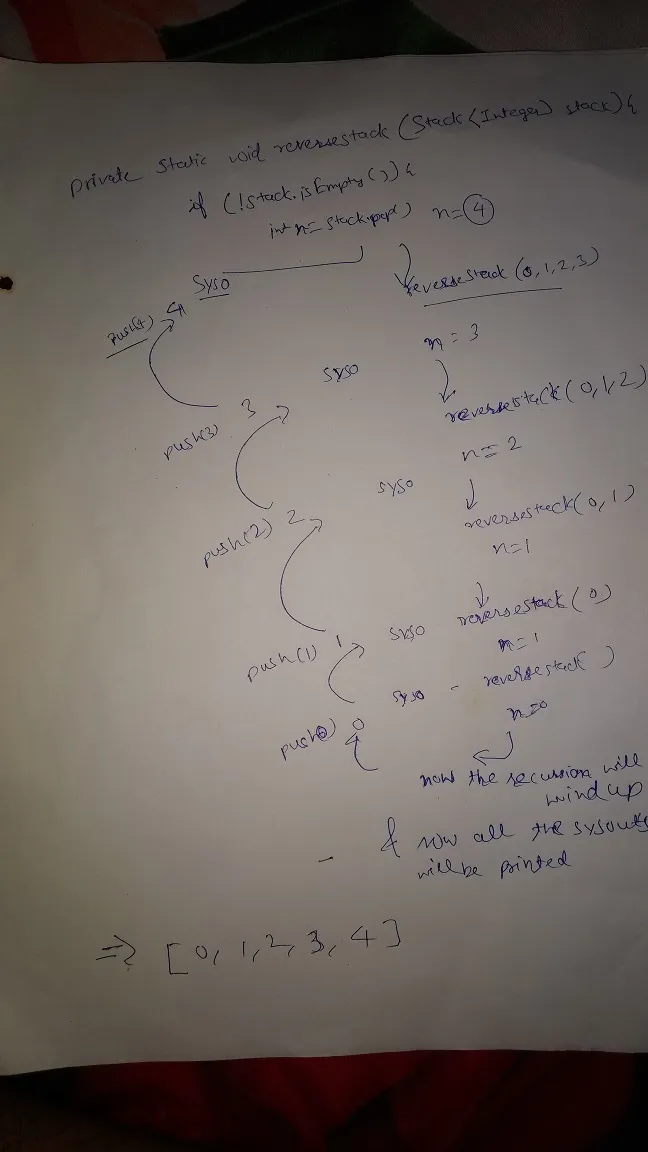 private static void reversestack (Stack<Integer> stack){
if (!stack.isEmpty()){
int n= stack.pop() n= 4
Syso reversestack (0,1,2,3)
push(4) 4
n = 3
syso
push(3) 3 reversestack (0,1,2)
n = 2
syso
push(2) 2 reversestack(0,1)
n=1
push(1) 1 syso reversestack (0)
n=1
syso - reversestack( )
push(0) 0 n=0
now the recussion will
wind up
& now all the sysouts
- will be printed
=> [0, 1, 2, 3, 4]